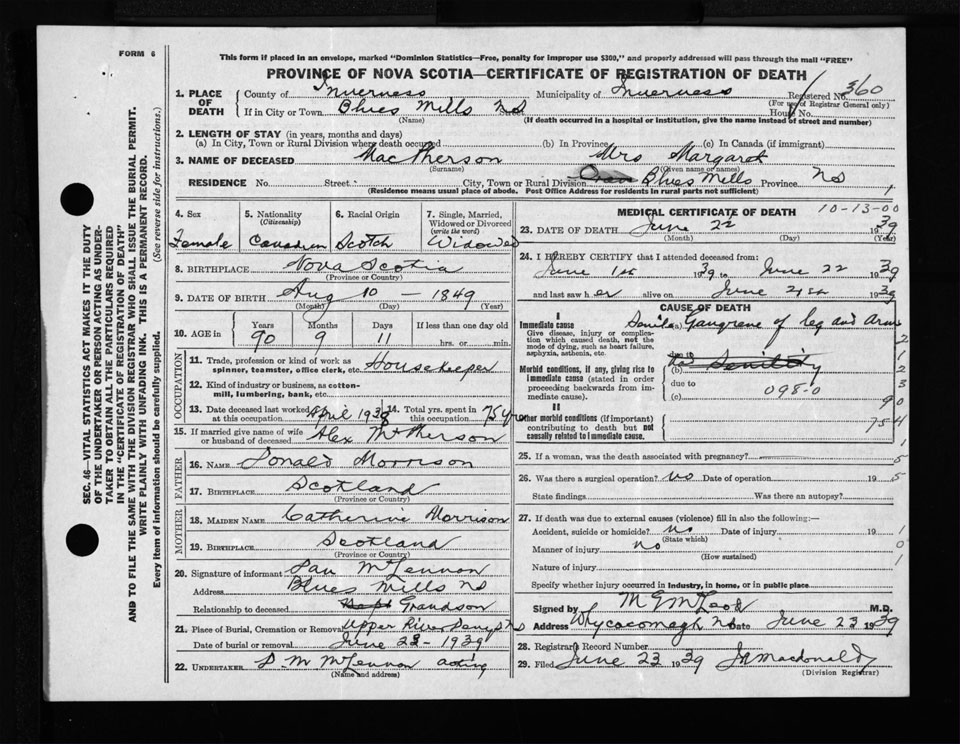 FORM 6
This form if placed in an envelope, marked "Dominion Statistics—Free, penalty for improper use $300," and properly addressed will pass through the mail "FREE"
PROVINCE OF NOVA SCOTIA—CERTIFICATE OF REGISTRATION OF DEATH
1. PLACE OF DEATH
County of Inverness Municipality of Inverness Registered No. 360
(For use of Registrar General only)
If in City or Town Blues Mills NS Street House No.
(Name) (If death occurred in a hospital or institution, give the name instead of street and number)
2. LENGTH OF STAY (in years, months and days)
(a) In City, Town or Rural Division where death occurred (b) In Province (c) In Canada (if immigrant)
3. NAME OF DECEASED MacPherson Mrs Margaret
(Surname) (Given name or names)
RESIDENCE No. Street City, Town or Rural Division Blues Mills Province NS
(Residence means usual place of abode. Post Office Address for residents in rural parts not sufficient)
4. Sex
Female
5. Nationality
(Citizenship)
Canadian
6. Racial Origin
Scotch
7. Single, Married, Widowed or Divorced
(write the word)
Widowed
8. BIRTHPLACE Nova Scotia
(Province or Country)
9. DATE OF BIRTH Aug 10 - 1849
(Month) (Day) (Year)
10. AGE in
Years Months Days If less than one day old
90 9 11 hrs. or min.
OCCUPATION
11. Trade, profession or kind of work as spinner, teamster, office clerk, etc. Housekeeper
12. Kind of industry or business, as cotton-mill, lumbering, bank, etc.
13. Date deceased last worked at this occupation April 1938
14. Total yrs. spent in this occupation 75 yrs
15. If married give name of wife or husband of deceased Alex McPherson
FATHER
16. NAME Donald Morrison
17. BIRTHPLACE Scotland
(Province or Country)
MOTHER
18. MAIDEN NAME Catherine Morrison
19. BIRTHPLACE Scotland
(Province or Country)
20. Signature of informant Dan McLennon
Address Blues Mills NS
Relationship to deceased Grandson
21. Place of Burial, Cremation or Removal Upper River Denys NS
Date of burial or removal June 23 - 1939
22. UNDERTAKER D. M McLennon acting
(Name and address)
MEDICAL CERTIFICATE OF DEATH 10-13-00
23. DATE OF DEATH June 22 1939
(Month) (Day) (Year)
24. I HEREBY CERTIFY that I attended deceased from:
June 1st 1939 to June 22 1939
and last saw her alive on June 21st 1939
CAUSE OF DEATH
I
Immediate cause
Give disease, injury or complication which caused death, not the mode of dying, such as heart failure, asphyxia, asthenia, etc.
Senile (a) Gangrene of leg and Arm
Morbid conditions, if any, giving rise to immediate cause (stated in order proceeding backwards from immediate cause).
(b) Senility
due to
(c) 098-0
II
Other morbid conditions (if important) contributing to death but not causally related to immediate cause.
2
1
2
3
90
754
1
25. If a woman, was the death associated with pregnancy? 5
26. Was there a surgical operation? No Date of operation 19 5
State findings Was there an autopsy?
27. If death was due to external causes (violence) fill in also the following:—
Accident, suicide or homicide? no Date of injury 19 1
(State which)
Manner of injury no 0
(How sustained)
Nature of injury 1
Specify whether injury occurred in industry, in home, or in public place
Signed by M G McLeod M.D.
Address Whycocomagh NS Date June 23 1939
28. Registrar's Record Number
29. Filed June 23 1939 JR Macdonald
(Division Registrar)
SEC. 46—VITAL STATISTICS ACT MAKES IT THE DUTY
OF THE UNDERTAKER OR PERSON ACTING AS UNDER-
TAKER TO OBTAIN ALL THE PARTICULARS REQUIRED
IN THE "CERTIFICATE OF REGISTRATION OF DEATH"
AND TO FILE THE SAME WITH THE DIVISION REGISTRAR WHO SHALL ISSUE THE BURIAL PERMIT.
WRITE PLAINLY WITH UNFADING INK. THIS IS A PERMANENT RECORD.
Every item of information should be carefully supplied. (See reverse side for instructions.)